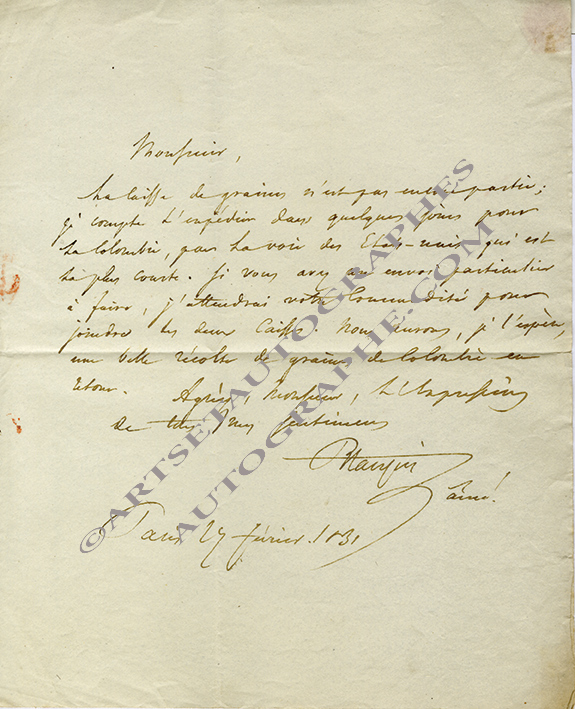 Monsieur,
La caisse de graines n'est pas encore partie;
je compte l'expédier dans quelques jours pour
la Colombie, par la voie des Etats-unis qui est
la plus courte. Si vous avez un envoi particulier
à faire, j'attendrai votre Commodité pour
joindre les deux Caisses. Nous aurons, je l'espère,
une belle récolte de graines de Colombie en
retour. Agréez, Monsieur, L'Expression
de tous mes sentimens
l'ainé.
Paris 27 février 1831
©ARTSETAUTOGRAPHES
AUTOGRAPHE.COM